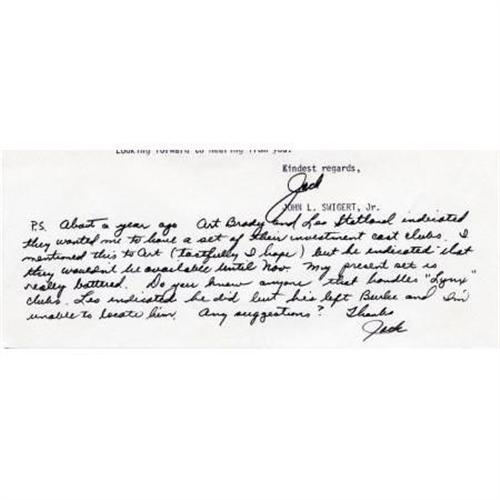 Looking forward to hearing from you.
Kindest regards,
Jack
JOHN L. SWIGERT, Jr.
P.S. About a year ago Art Brady and Leo indicated
they wanted me to have a set of their investment cast clubs. I
mentioned this to Art (tactfully I hope) but he indicated that
they wouldn't be available until Nov. My present set is
really battered. Do you know anyone that handles "Lynx"
clubs. Leo indicated he did but his left Burke and I'm
unable to locate him. Any suggestions? Thanks
Jack